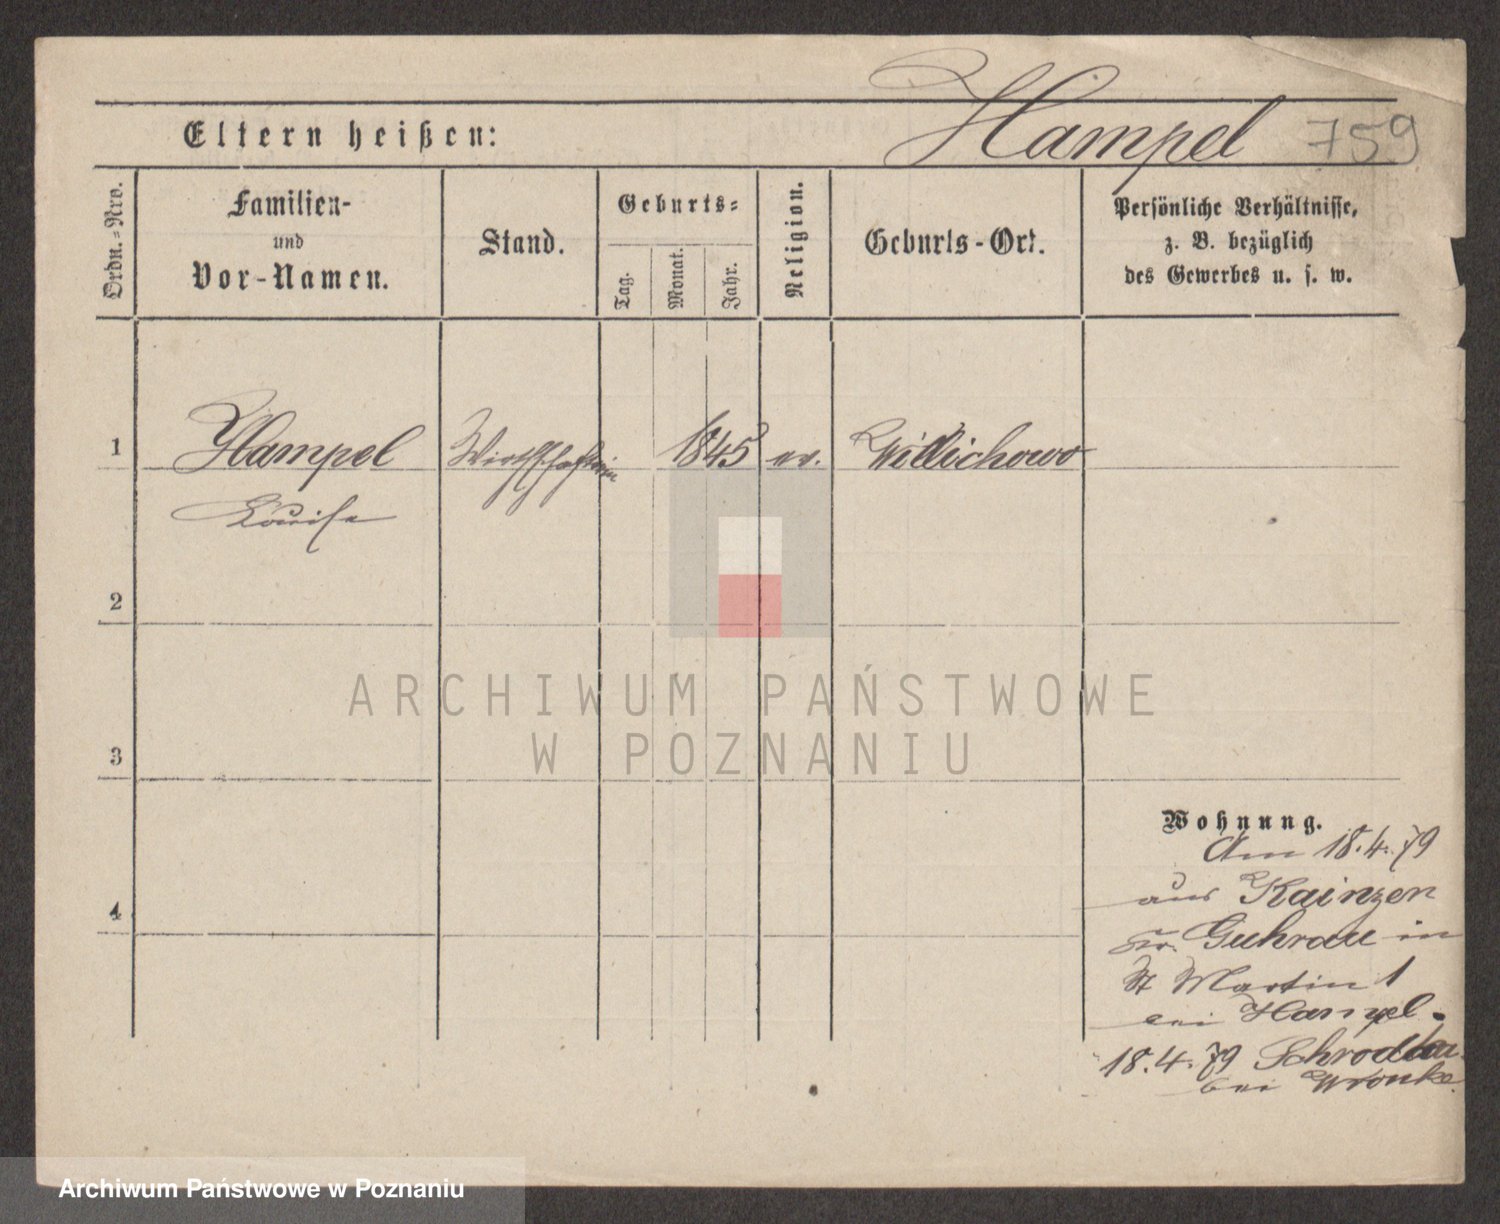 Hampel 759
Eltern heißen:
Ordn.-Nro.
Familien-
und
Vor-Namen.
Stand.
Geburts-
Tag.
Monat.
Jahr.
Religion.
Geburts-Ort.
Persönliche Verhältnisse,
z. B. bezüglich
des Gewerbes u. s. w.
1 Hampel Wirthschafterin 1845 ev. Willichowo
Louise
2
3
4
Wohnung.
Am 18.4.79
aus Kainzen
Kr. Guhrau in
St Martin 1
bei Hampel.
18.4.79 Schrodka
bei Wronke
ARCHIWUM PAŃSTWOWE
W POZNANIU
Archiwum Państwowe w Poznaniu